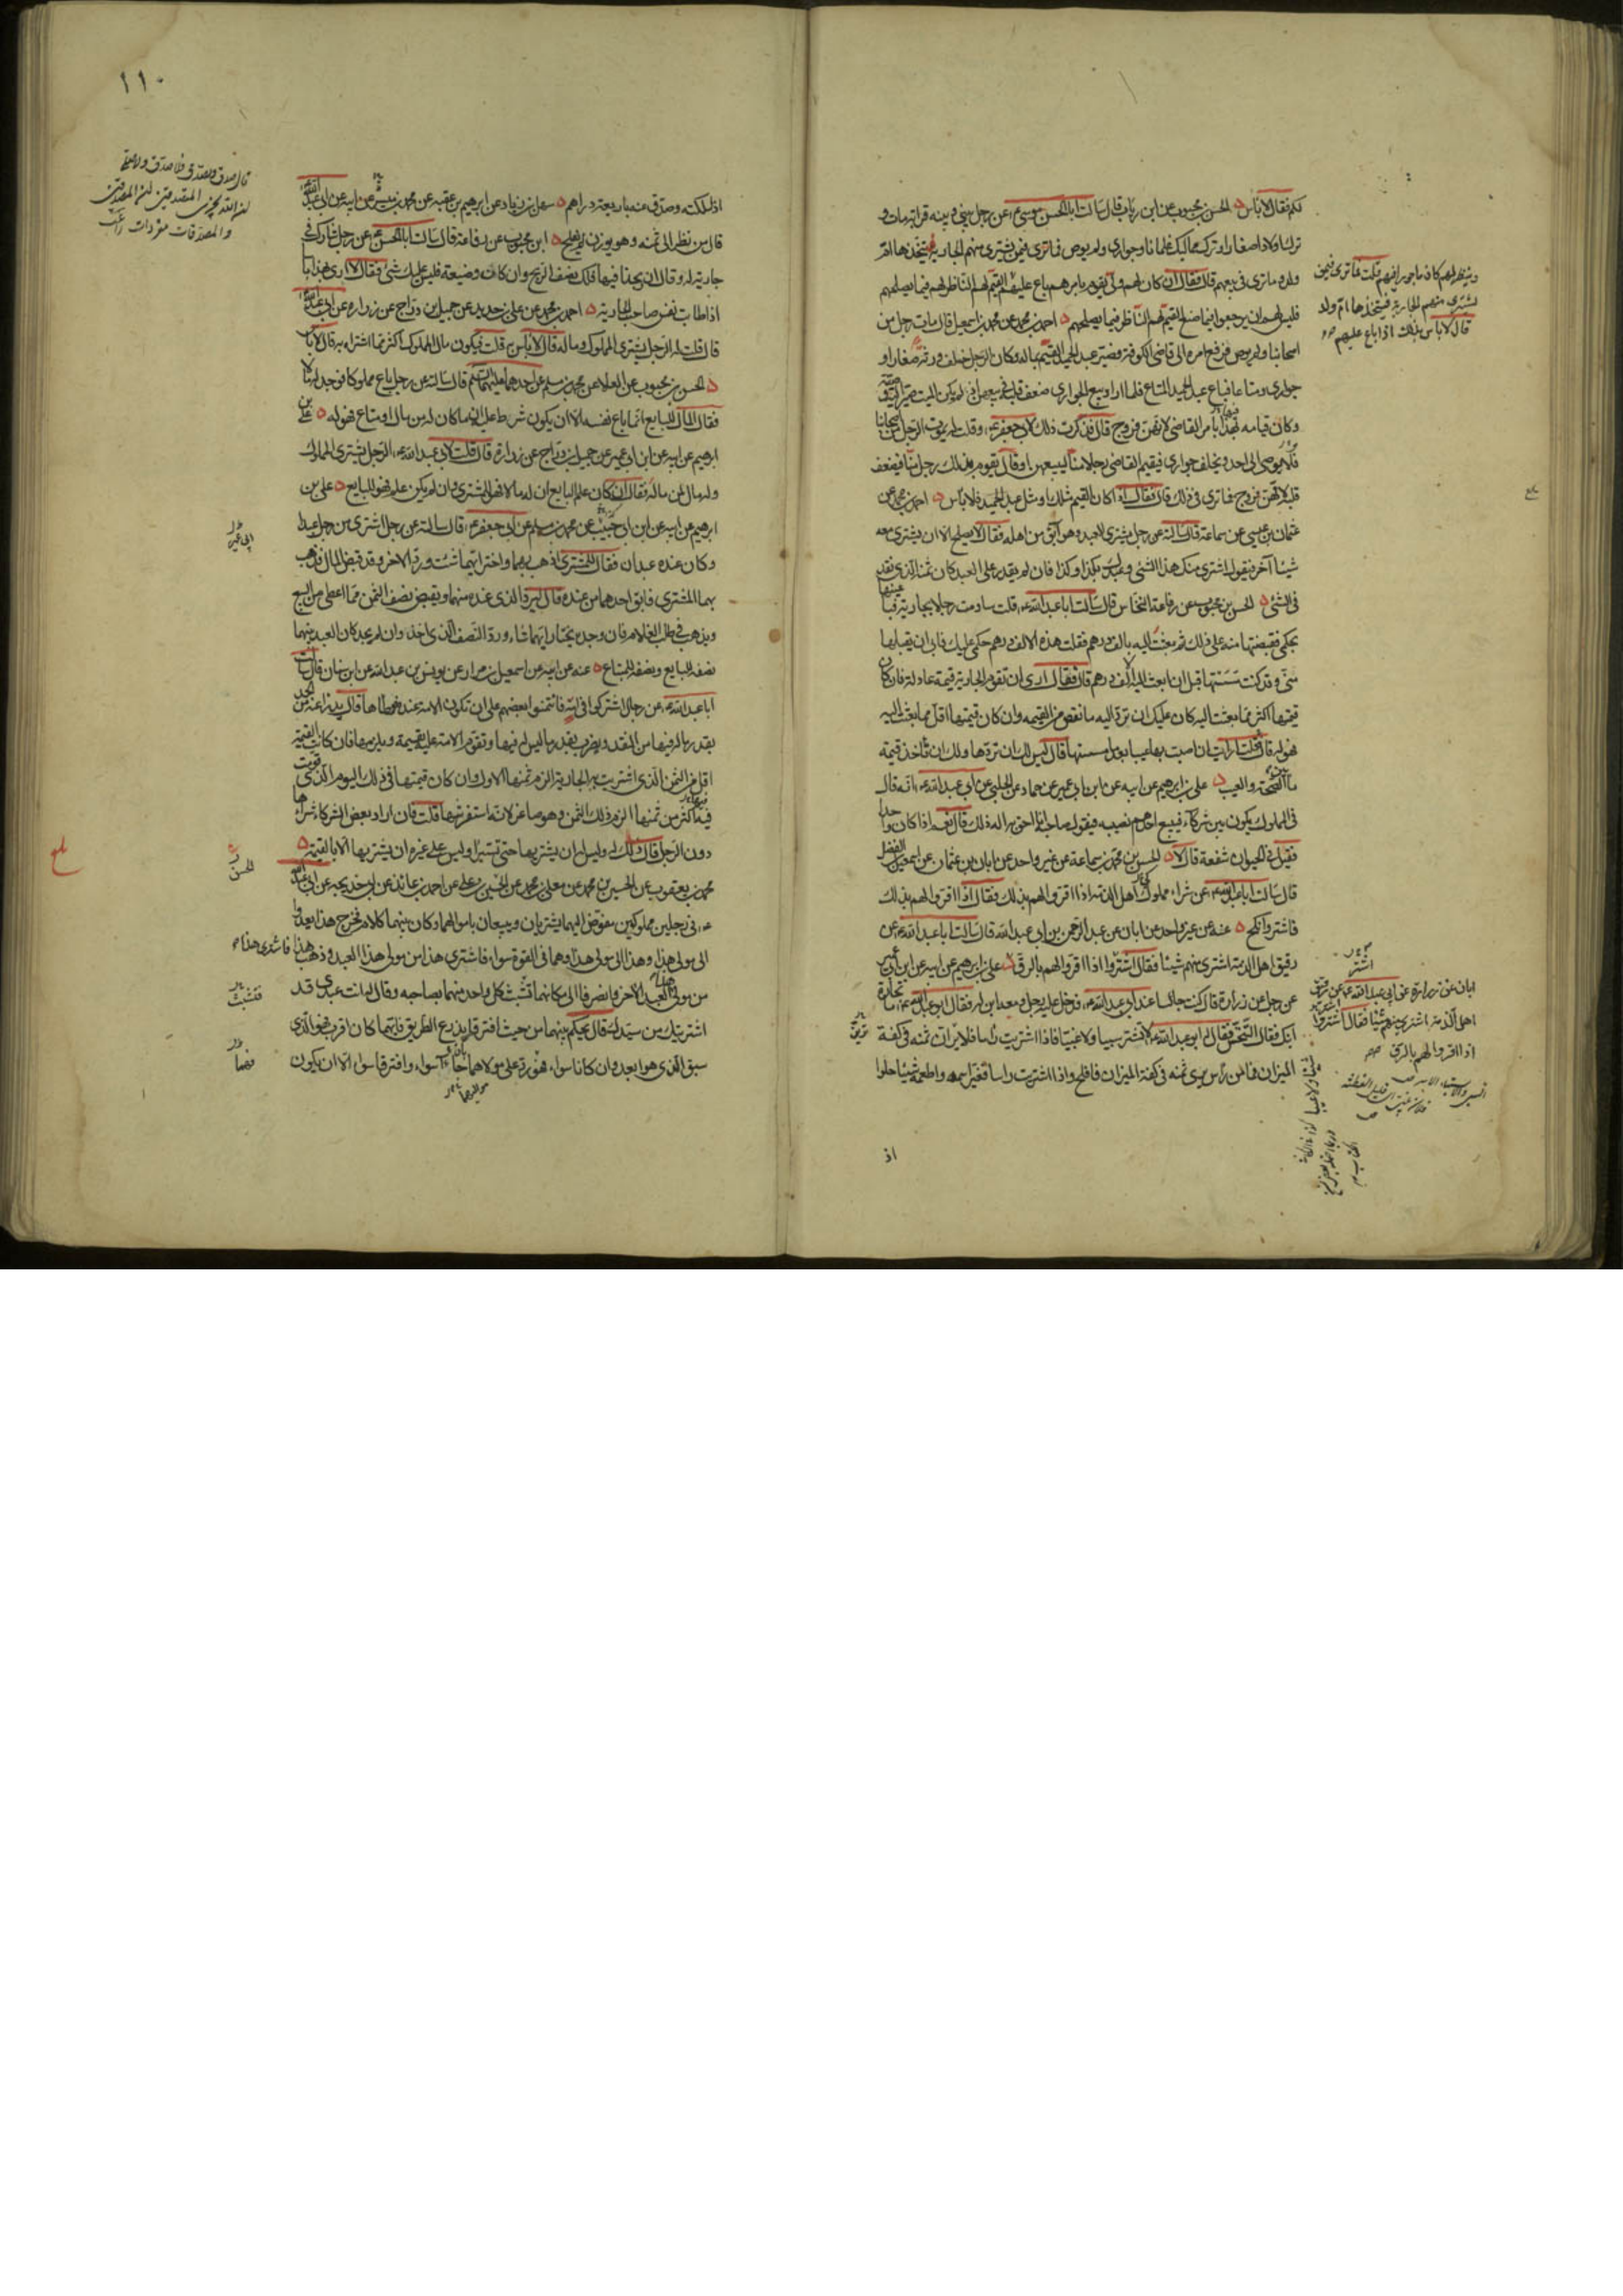 لكم فقال لا بأس ن الحسن بن محبوب عن ابن رياب قال سالت ابا الحسن موسى ع عن رجل بيني وبينه قرابة مات و
ترك اولادا صغارا وترك مماليك غلمانا وجواري ولم يوص فما ترى فيمن يشتري منهم الجارية فيتخذها ام
ولد وما ترى في بيعهم قال فقال ان كان لهم ولي يقوم بامرهم باع عليهم القيم لهم الناظر لهم فيما يصلحهم
فليس لهم ان يرجعوا فيما صنع القيم لهم الناظر فيما يصلحهم ن احمد بن محمد عن محمد بن اسمعيل قال مات رجل من
اصحابنا ولم يوص فرفع امره الى قاضي الكوفة فصير عبد الحميد القيم بماله وكان الرجل خلف ورثة صغارا و
جواري ومتاعا فباع عبد الحميد المتاع فلما اراد بيع الجواري ضعف قلبه في بيعهن اذ لم يكن الميت صير اليه وصيته
وكان قيامه بهذا بامر القاضي لانهن فروج قال فذكرت ذلك لابي جعفر ع وقلت له يموت الرجل من اصحابنا
فلا يوصي الى احد ويخلف جواري فيقيم القاضي رجلا منا ليبيعهن او قال يقوم بذلك رجل منا فيضعف
قلبه لانهن فروج فما ترى في ذلك قال فقال اذا كان القيم مثلك او مثل عبد الحميد فلا بأس ن احمد بن محمد عن
عثمان بن عيسى عن سماعة قال سالته عن رجل يشتري العبد وهو آبق من اهله فقال لا يصلح الا ان يشتري معه
شيئا آخر فيقول اشتري منك هذا الشئ وعبدك بكذا وكذا فان لم يقدر على العبد كان ثمنه الذي نقد
في الشئ ن الحسن بن محبوب عن رفاعة النخاس قال سالت ابا عبد الله ع قلت ساومت رجلا بجارية فباعنيها
بحكمي فقبضتها منه على ذلك ثم بعثت اليه بالف درهم فقلت هذه الالف درهم حكمي عليك فابى ان يقبلها
مني وقد كنت مسستها قبل ان ابعث اليه الالف درهم قال فقال ارى ان تقوم الجارية قيمة عادلة فان كان
قيمتها اكثر مما بعثت اليه كان عليك ان ترد اليه ما نقص من القيمة وان كان قيمتها اقل مما بعثت اليه
فهو له قال قلت ارايت ان اصبت بها عيبا بعد ما مسستها قال ليس لك ان تردها ولك ان تأخذ قيمة
ما بين الصحة والعيب ن علي بن ابرهيم عن ابيه عن ابن ابي عمير عن حماد عن الحلبي عن ابي عبد الله ع انه قال
في المملوك يكون بين شركاء فيبيع احدهم نصيبه فيقول صاحبه انا احق به اله ذلك قال نعم اذا كان واحدا
فقيل في الحيوان شفعة قال لا ن الحسن بن محمد بن سماعة عن غير واحد عن ابان بن عثمان عن اسمعيل بن الفضل
قال سالت ابا عبد الله ع عن شراء مملوك اهل الذمة اذا اقروا لهم بذلك فقال اذا اقروا لهم بذلك
فاشتر وانكح ن عنه عن غير واحد عن ابان عن عبد الرحمن بن ابي عبد الله قال سالت ابا عبد الله ع عن
رقيق اهل الذمة اشتري منهم شيئا فقال اشتر اذا اقروا لهم بالرق ن علي بن ابرهيم عن ابيه عن ابن ابي عمير
عن رجل عن زرارة قال كنت جالسا عند ابي عبد الله ع فدخل عليه رجل ومعه ابن له فقال ابو عبد الله ع ما تجارة
ابنك فقال التنخس فقال ابو عبد الله ع لا تشتر سبيا ولا غبيا فاذا اشتريت راسا فلا يرين ثمنه في كفة
الميزان فما من رأس يرى ثمنه في كفة الميزان فافلح واذا اشتريت راسا فغير اسمه واطعمه شيئا حلوا
اذ
وينظر لهم كان ماجورا فيهم قلت فما ترى فيمن
يشتري منهم الجارية فيتخذها ام ولد
قال لا بأس بذلك اذا باع عليهم
ابان عن زرارة عن ابي عبد الله ع عن رقيق
اهل الذمة اشتري منهم شيئا فقال اشتر
اذا اقروا لهم بالرق
١١٠
اذا ملكته وصدق عنه باربعة دراهم ن سهل بن زياد عن ابرهيم بن عقبة عن محمد بن ميسر عن ابيه عن ابي عبد الله ع
قال من نظر الى ثمنه وهو يوزن لم يفلح ن ابن محبوب عن رفاعة قال سالت ابا الحسن ع عن رجل شارك في
جارية له وقال ان ربحنا فيها فلك نصف الربح وان كان وضيعة فليس عليك شئ فقال لا ارى بهذا بأسا
اذا طابت نفس صاحب الجارية ن احمد بن محمد عن علي بن حديد عن جميل بن دراج عن زرارة عن ابي عبد الله ع
قال قلت له الرجل يشتري المملوك وماله قال لا بأس به قلت فيكون مال المملوك اكثر مما اشتراه به قال لا بأس
ن الحسن بن محبوب عن العلاء عن محمد بن مسلم عن احدهما عليهما السلم قال سالته عن رجل باع مملوكا فوجد له مالا
فقال المال للبايع انما باع نفسه الا ان يكون شرط عليه ان ما كان له من مال او متاع فهو له ن علي بن
ابرهيم عن ابيه عن ابن ابي عمير عن جميل بن دراج عن زرارة قال قلت لابي عبد الله ع الرجل يشتري المملوك
وله مال لمن ماله فقال ان كان علم البايع ان له مالا فهو للمشتري وان لم يكن علم فهو للبايع ن علي بن
ابرهيم عن ابيه عن ابن ابي حبيب عن محمد بن مسلم عن ابي جعفر ع قال سالته عن رجل اشترى من رجل عبدا
وكان عنده عبدان فقال للمشتري اذهب بهما واختر ايهما شئت ورد الآخر وقد قبض المال فذهب
بهما المشتري فابق احدهما من عنده قال ليرد الذي عنده منهما ويقبض نصف الثمن مما اعطى من البيع
ويذهب في طلب الغلام فان وجد يختار ايهما شاء ورد النصف الذي اخذ وان لم يجد كان العبد بينهما
نصفه للبايع ونصفه للمبتاع ن عنه عن ابيه عن اسمعيل بن مرار عن يونس بن عبد الله عن ابن سنان قال سالت
ابا عبد الله ع عن رجال اشتركوا في امة فائتمنوا بعضهم على ان تكون الامة عنده فوطئها قال يدرأ عنه من الحد
بقدر ما له فيها من النقد ويضرب بقدر ما ليس له فيها وتقوم الامة عليه بقيمة ويلزمها فان كانت القيمة
اقل من الثمن الذي اشتريت به الجارية الزم ثمنها الاول وان كان قيمتها في ذلك اليوم الذي قومت
فيه اكثر من ثمنها الزم ذلك الثمن وهو صاغر لانه استفرشها قلت فان اراد بعض الشركاء شراها
دون الرجل قال ذلك له وليس له ان يشتريها حتى تستبرأ وليس على غيره ان يشتريها الا بالقيمة ن
محمد بن يعقوب عن الحسين بن محمد عن معلى بن محمد عن الحسن بن علي عن احمد بن عائذ عن ابي خديجة عن ابي عبد الله
ع في رجلين مملوكين مفوض اليهما يشتريان ويبيعان باموالهما وكان بينهما كلام فخرج هذا يعدوا
الى مولى هذا وهذا الى مولى هذا وهما في القوة سواء فاشترى هذا من مولى هذا العبد وذهب هذا فاشترى هذا
من مولاه العبد الآخر وانصرفا الى مكانهما تشبث كل واحد منهما بصاحبه وقال له انت عبدي قد
اشتريتك من سيدك قال يحكم بينهما من حيث افترقا يذرع الطريق فايهما كان اقرب فهو الذي
سبق الذي هو ابعد وان كانا سواء فهو رد على مولاهما جاءا سواء وافترقا سواء الا ان يكون
ابي عمير
الحسن
فتشبث
فهما
بلغ